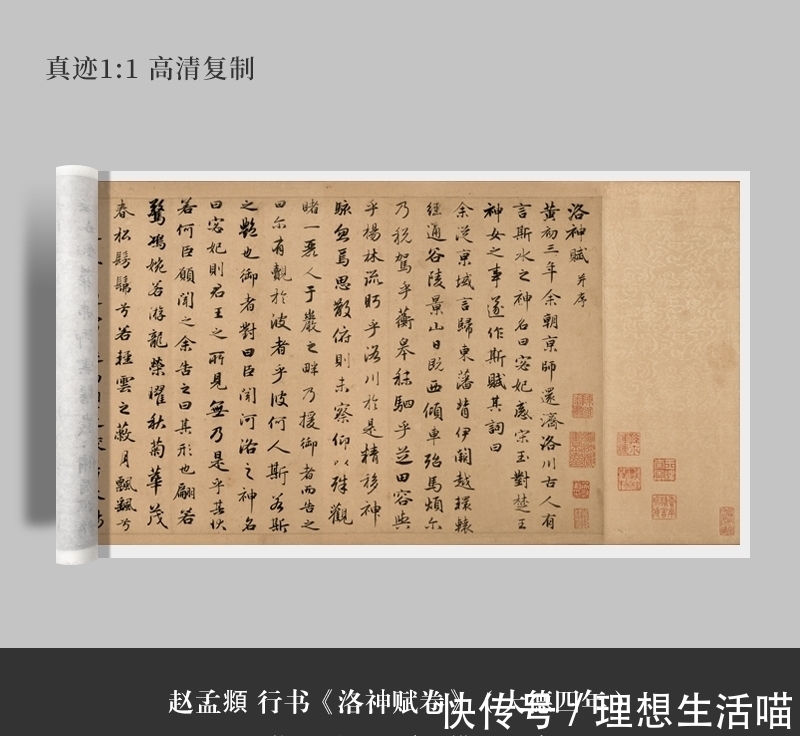 真迹1:1 高清复制
洛神賦 并序
黄初三年余朝京師還濟洛川古人有
言斯水之神名曰宓妃感宋玉對楚王
神女之事遂作斯賦其詞曰
余從京域言歸東藩背伊闕越轘轅
經通谷陵景山日既西傾車殆馬煩尔
乃税駕乎蘅皋秣駟乎芝田容與
乎楊林流眄乎洛川於是精移神
駭忽焉思散俯則未察仰以殊觀
睹一麗人于巖之畔乃援御者而告之
曰尔有覿於彼者乎彼何人斯若斯
之艷也御者對曰臣聞河洛之神名
曰宓妃則君王之所見無乃是乎其狀
若何臣願聞之余告之曰其形也翩若
驚鴻婉若游龍榮曜秋菊華茂
春松髣髴兮若輕雲之蔽月飄飄兮
赵孟頫 行书《洛神赋卷》（大德四年）
快传号 / 理想生活喵